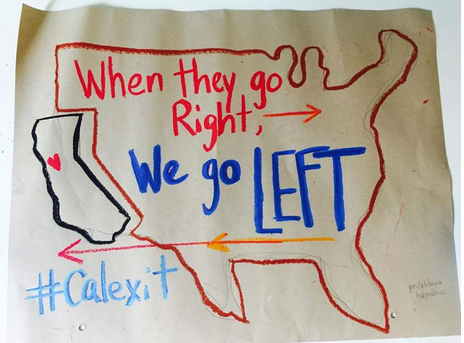 When they go
Right,
We go LEFT
#Calexit